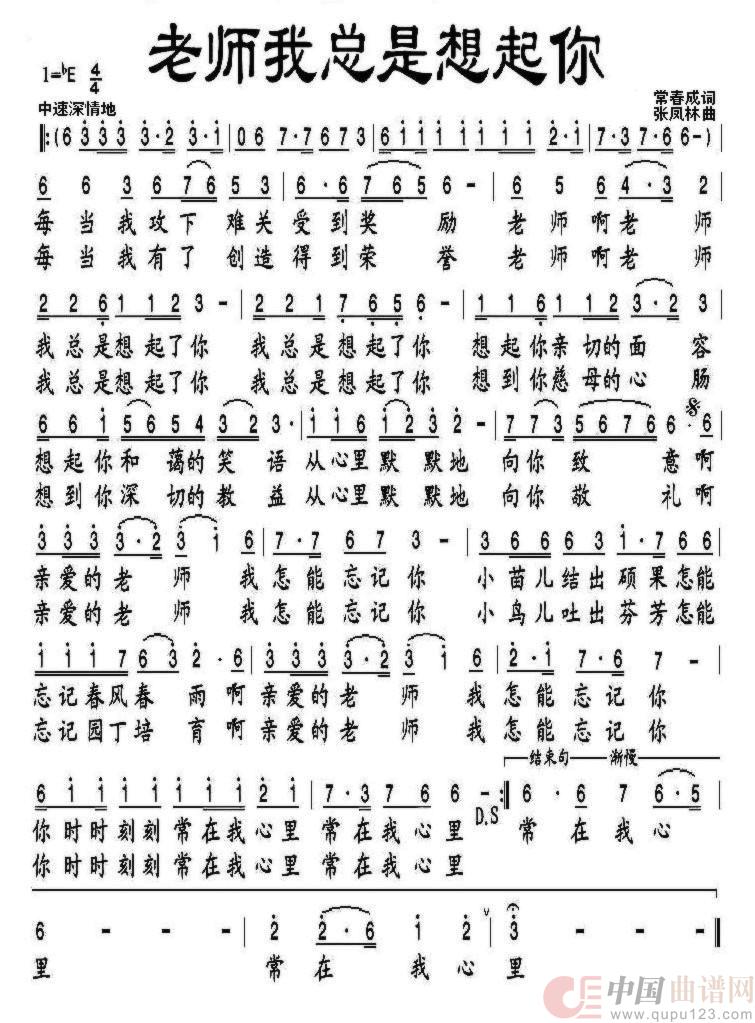 老师我总是想起你
1=♭E 4/4
中速深情地
常春成词
张凤林曲
‖:(6 3 3 3 3·2 3·1 | 0 6 7·7 6 7 3 | 6 1 1 1 1 1 1 2·1 | 7·3 7·6 6 -)
6 6 3 6 7 6 5 3 | 6·6 7 5 6 - | 6 5 6 4·3 2
每当我攻下难关受到奖励 老师啊老师
每当我有了创造得到荣誉 老师啊老师
2 2 6 1 1 2 3 - | 2 2 1 7 6 5 6 - | 1 6 1 1 2 3·2 3
我总是想起了你 我总是想起了你 想起你亲切的面容
我总是想起了你 我总是想起了你 想到你慈母的心肠
6 6 1 5 6 5 4 3 2 3· | 1 1 6 1 2 3 2· | 7 7 3 5 6 7 6 6· 6
想起你和蔼的笑语从心里默默地 向你致意啊
想到你深切的教益从心里默默地 向你敬礼啊
3 3 3 3·2 3 1 6 | 7·7 6 7 3 - | 3 6 6 6 3 5·5 3 5
亲爱的老师我怎能忘记你 小苗儿结出硕果怎能
亲爱的老师我怎能忘记你 小鸟儿吐出芬芳怎能
1 1 1 7 6 3 2· 6 | 3 3 3 3·2 3 1 6 | 2·1 7 6 7 -
忘记春风春雨啊亲爱的老师我怎能忘记你
忘记园丁培育啊亲爱的老师我怎能忘记你
结束句 渐慢
6 1 1 1 1 1 1 2 1 | 7·3 3 7 6 6 - :‖ 6·6 7 6·5
D.S
你时时刻刻常在我心里 常在我心里 常在我心
你时时刻刻常在我心里 常在我心里
6 - - - | 2 2·6 1 2 | 3 - - - ‖
里 常在我心里
中国曲谱网
www.qupu123.com